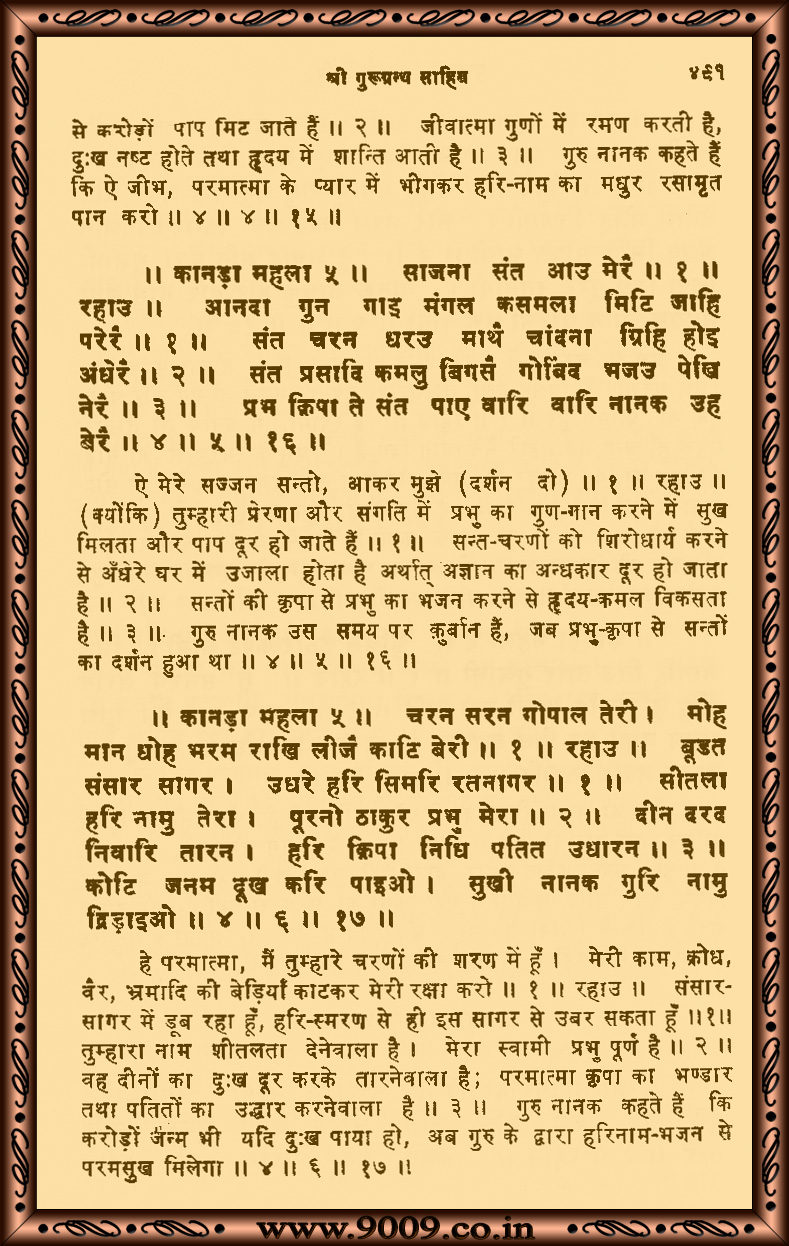 श्री गुरूग्रन्थ साहिब ४९१
से करोड़ों पाप मिट जाते हैं ॥ २ ॥ जीवात्मा गुणों में रमण करती है,
दुःख नष्ट होते तथा हृदय में शान्ति आती है ॥ ३ ॥ गुरु नानक कहते हैं
कि ऐ जीभ, परमात्मा के प्यार में भीगकर हरि-नाम का मधुर रसामृत
पान करो ॥ ४ ॥ ४ ॥ १५ ॥
॥ कानड़ा महला ५ ॥ साजना संत आउ मेरै ॥ १ ॥
रहाउ ॥ आनदा गुन गाइ मंगल कसमला मिटि जाहि
परेरै ॥ १ ॥ संत चरन धरउ माथै चांदना ग्रिहि होइ
अंधेरै ॥ २ ॥ संत प्रसादि कमलु बिगसै गोबिंद भजउ पेखि
नेरै ॥ ३ ॥ प्रभ क्रिपा ते संत पाए वारि वारि नानक उह
बेरै ॥ ४ ॥ ५ ॥ १६ ॥
ऐ मेरे सज्जन सन्तो, आकर मुझे (दर्शन दो) ॥ १ ॥ रहाउ ॥
(क्योंकि) तुम्हारी प्रेरणा और संगति में प्रभु का गुण-गान करने में सुख
मिलता और पाप दूर हो जाते हैं ॥ १ ॥ सन्त-चरणों को शिरोधार्य करने
से अँधेरे घर में उजाला होता है अर्थात् अज्ञान का अन्धकार दूर हो जाता
है ॥ २ ॥ सन्तों की कृपा से प्रभु का भजन करने से हृदय-कमल विकसता
है ॥ ३ ॥ गुरु नानक उस समय पर क़ुर्बान हैं, जब प्रभु-कृपा से सन्तों
का दर्शन हुआ था ॥ ४ ॥ ५ ॥ १६ ॥
॥ कानड़ा महला ५ ॥ चरन सरन गोपाल तेरी । मोह
मान धोह भरम राखि लीजै काटि बेरी ॥ १ ॥ रहाउ ॥ बूडत
संसार सागर । उधरे हरि सिमरि रतनागर ॥ १ ॥ सीतला
हरि नामु तेरा । पूरनो ठाकुर प्रभु मेरा ॥ २ ॥ दीन दरद
निवारि तारन । हरि क्रिपा निधि पतित उधारन ॥ ३ ॥
कोटि जनम दूख करि पाइओ । सुखी नानक गुरि नामु
द्रिड़ाइओ ॥ ४ ॥ ६ ॥ १७ ॥
हे परमात्मा, मैं तुम्हारे चरणों की शरण में हूँ । मेरी काम, क्रोध,
वैर, भ्रमादि की बेड़ियाँ काटकर मेरी रक्षा करो ॥ १ ॥ रहाउ ॥ संसार-
सागर में डूब रहा हूँ, हरि-स्मरण से ही इस सागर से उबर सकता हूँ ॥१॥
तुम्हारा नाम शीतलता देनेवाला है । मेरा स्वामी प्रभु पूर्ण है ॥ २ ॥
वह दीनों का दुःख दूर करके तारनेवाला है; परमात्मा कृपा का भण्डार
तथा पतितों का उद्धार करनेवाला है ॥ ३ ॥ गुरु नानक कहते हैं कि
करोड़ों जन्म भी यदि दुःख पाया हो, अब गुरु के द्वारा हरिनाम-भजन से
परमसुख मिलेगा ॥ ४ ॥ ६ ॥ १७ ॥
www.9009.co.in